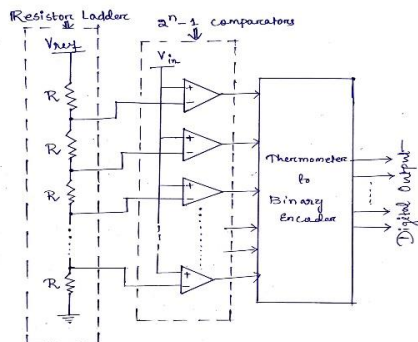 Resistor Ladder
2ⁿ-1 comparators
Vref
Vin
R
R
R
R
+
-
+
-
+
-
+
-
Thermometer
to
Binary
Encoder
Digital Output